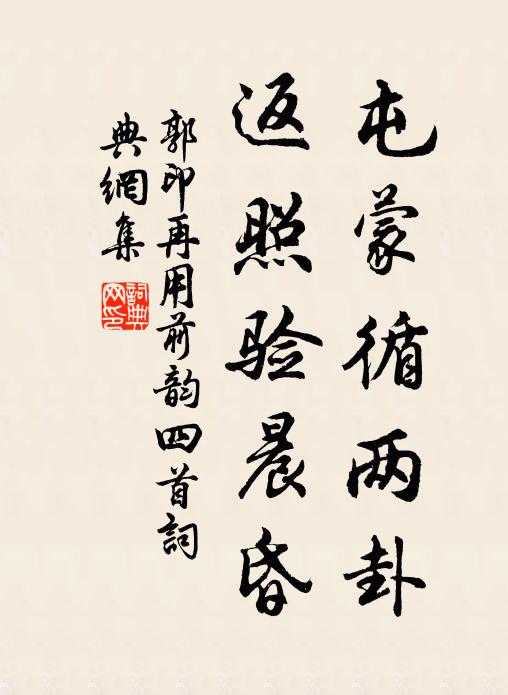 屯蒙循两卦
返照验晨昏
郭印再用前韵四首詞
典網集
詞典网印